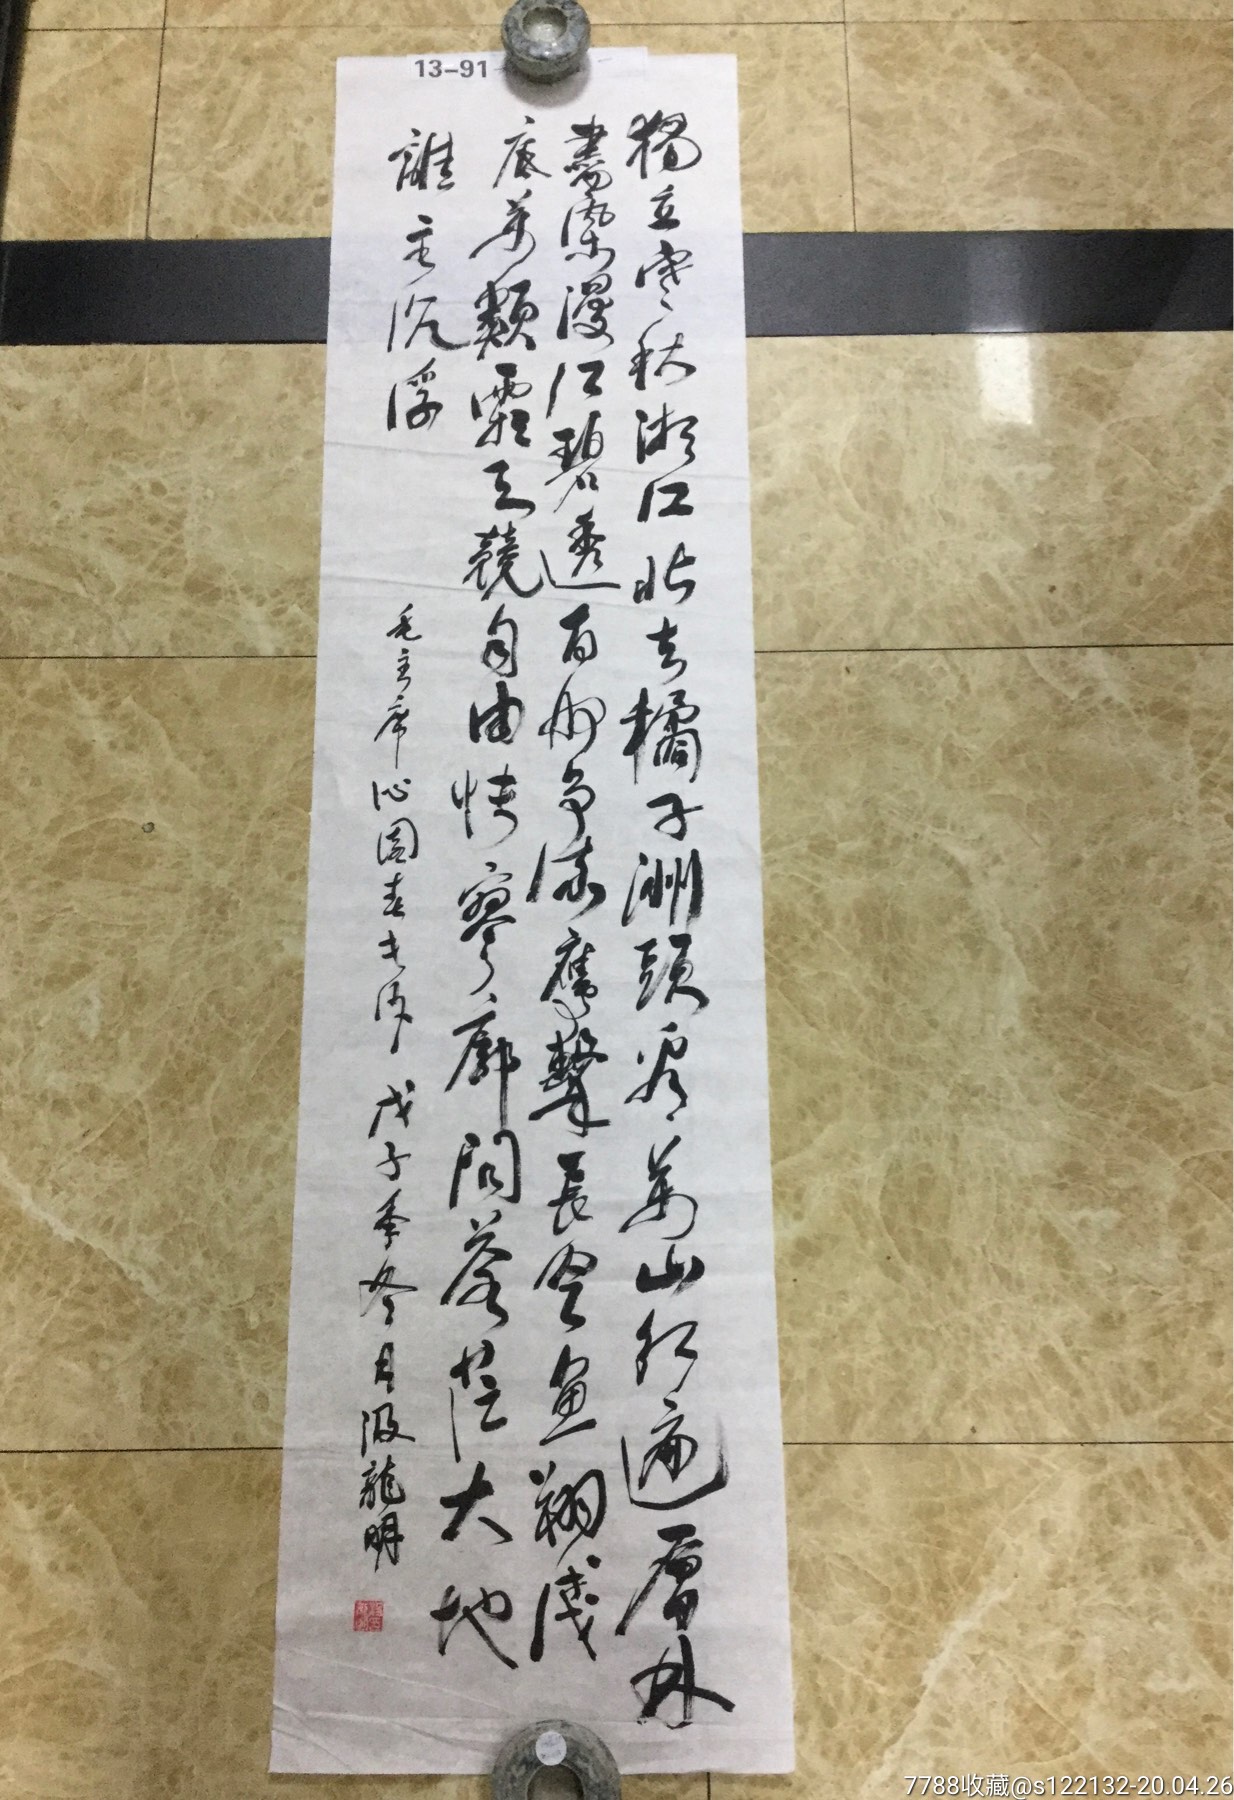 13-91
獨立寒秋湘江北去橘子洲頭看萬山紅遍層林
盡染漫江碧透百舸争流鷹擊長空魚翔淺
底萬類霜天競自由悵寥廓問蒼茫大地
誰主沉浮
毛主席沁園春長沙 戊子年冬月汲龍明
7788收藏@s122132-20.04.26